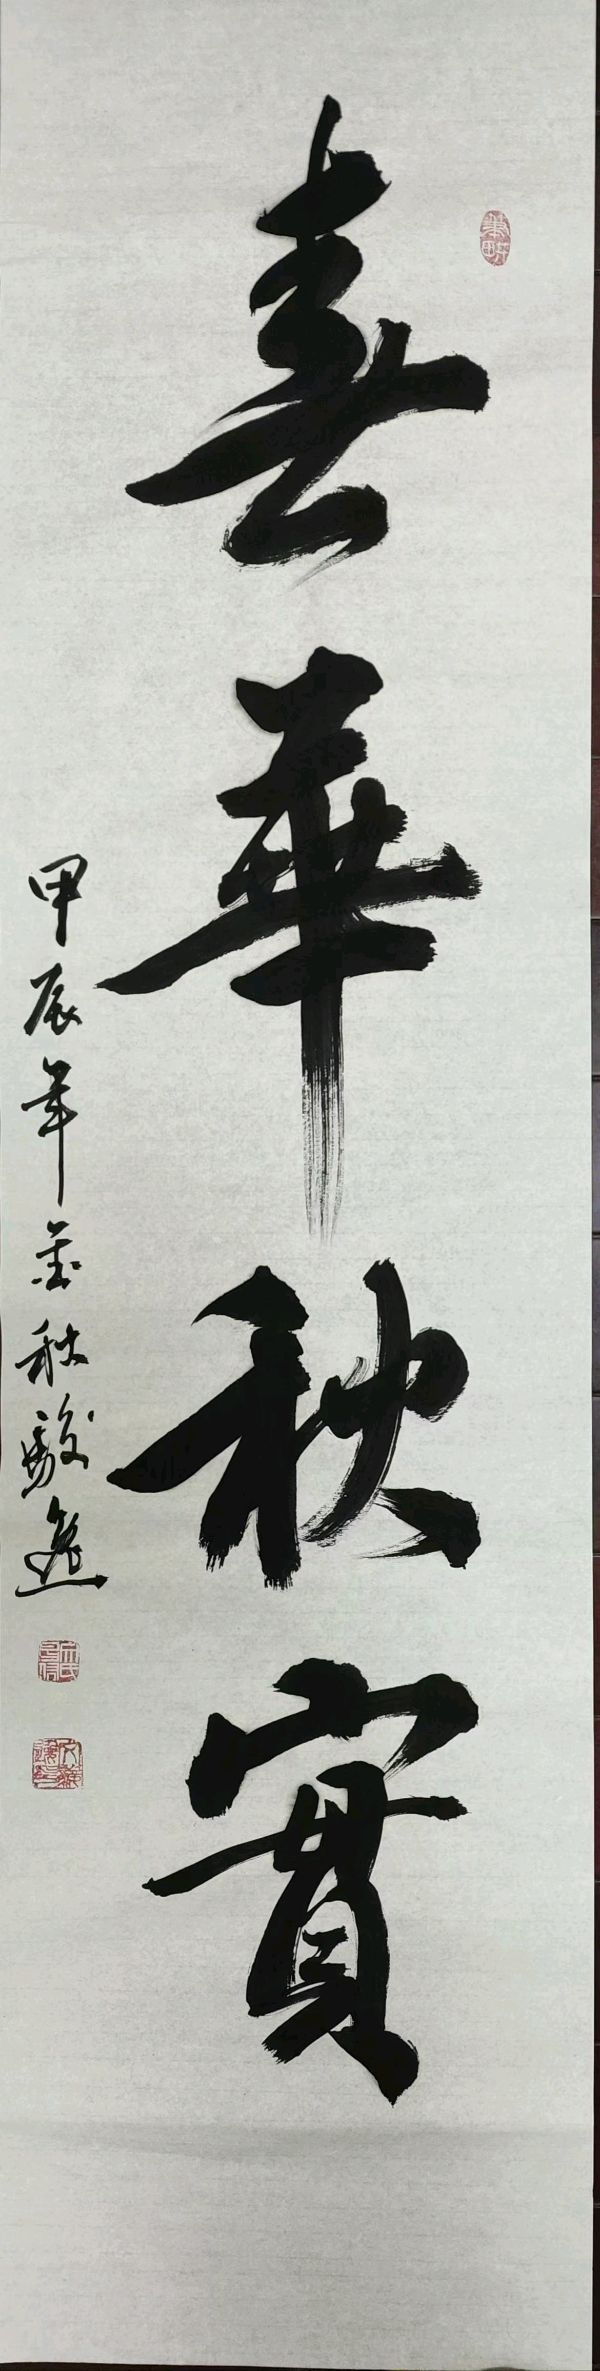 春華秋實
甲辰年金秋駿逸